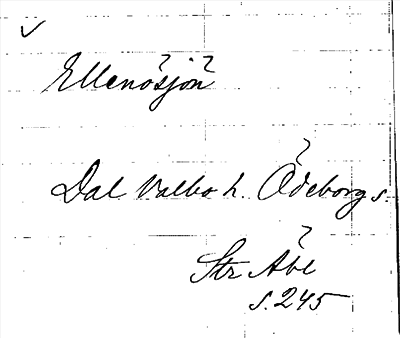 ✓
Ellenösjön
Dal Valbo h. Ödeborg s.
Str Åvl
s. 245